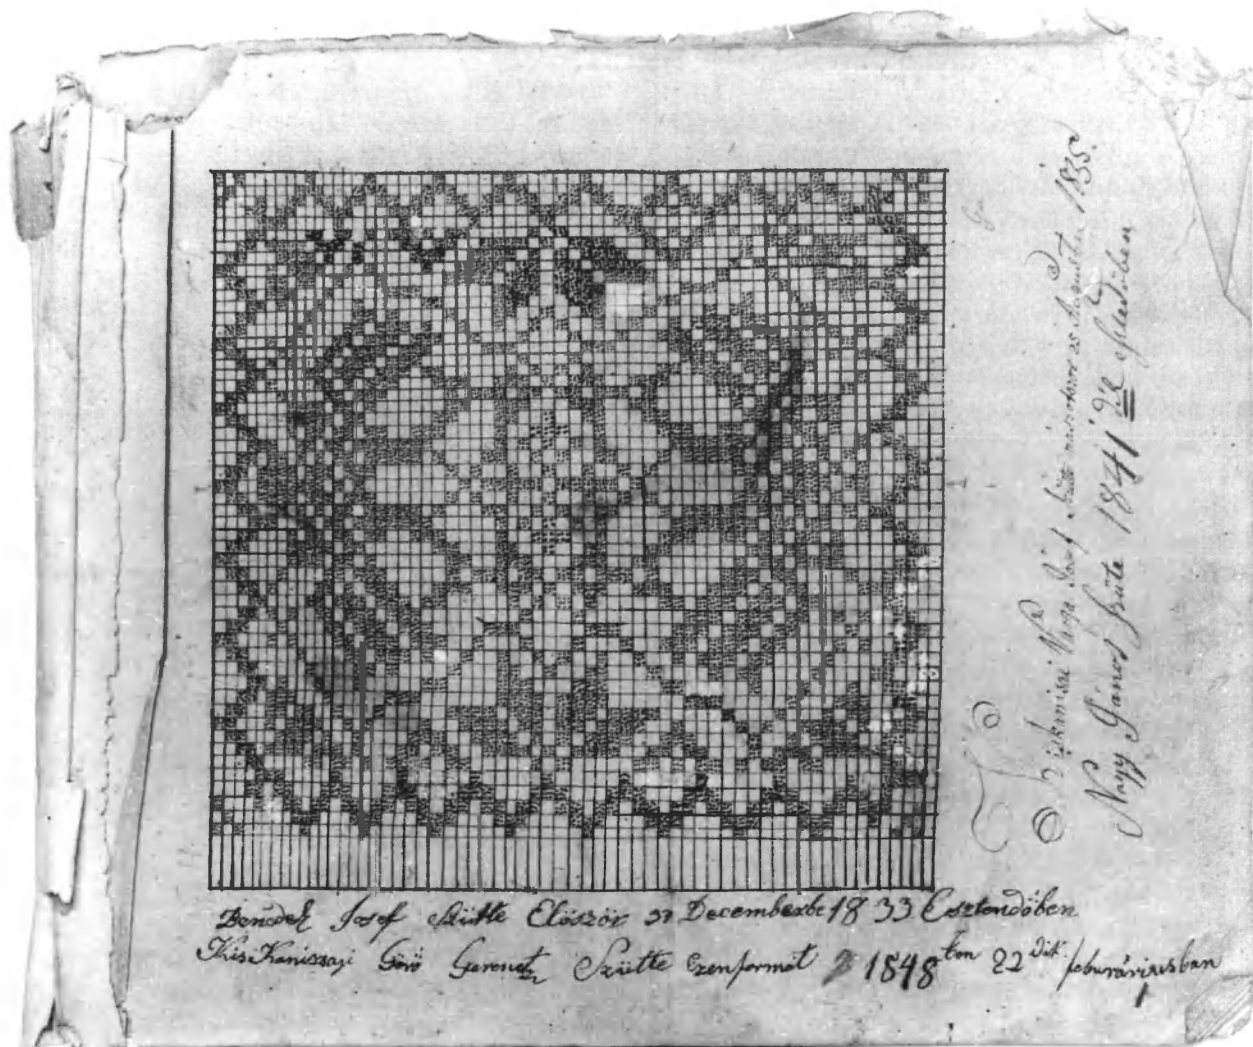 Benedek Josef szütte Elöször 31 Decemberbe 1833 Esztendöben
Kis Kanissayi Görö Gerencz Szütte ezenformát 1848 ban 22 dik februáriusban
Varga Jósef Szüte 1835.
Nagy János szüte 1841 dik esztendőben